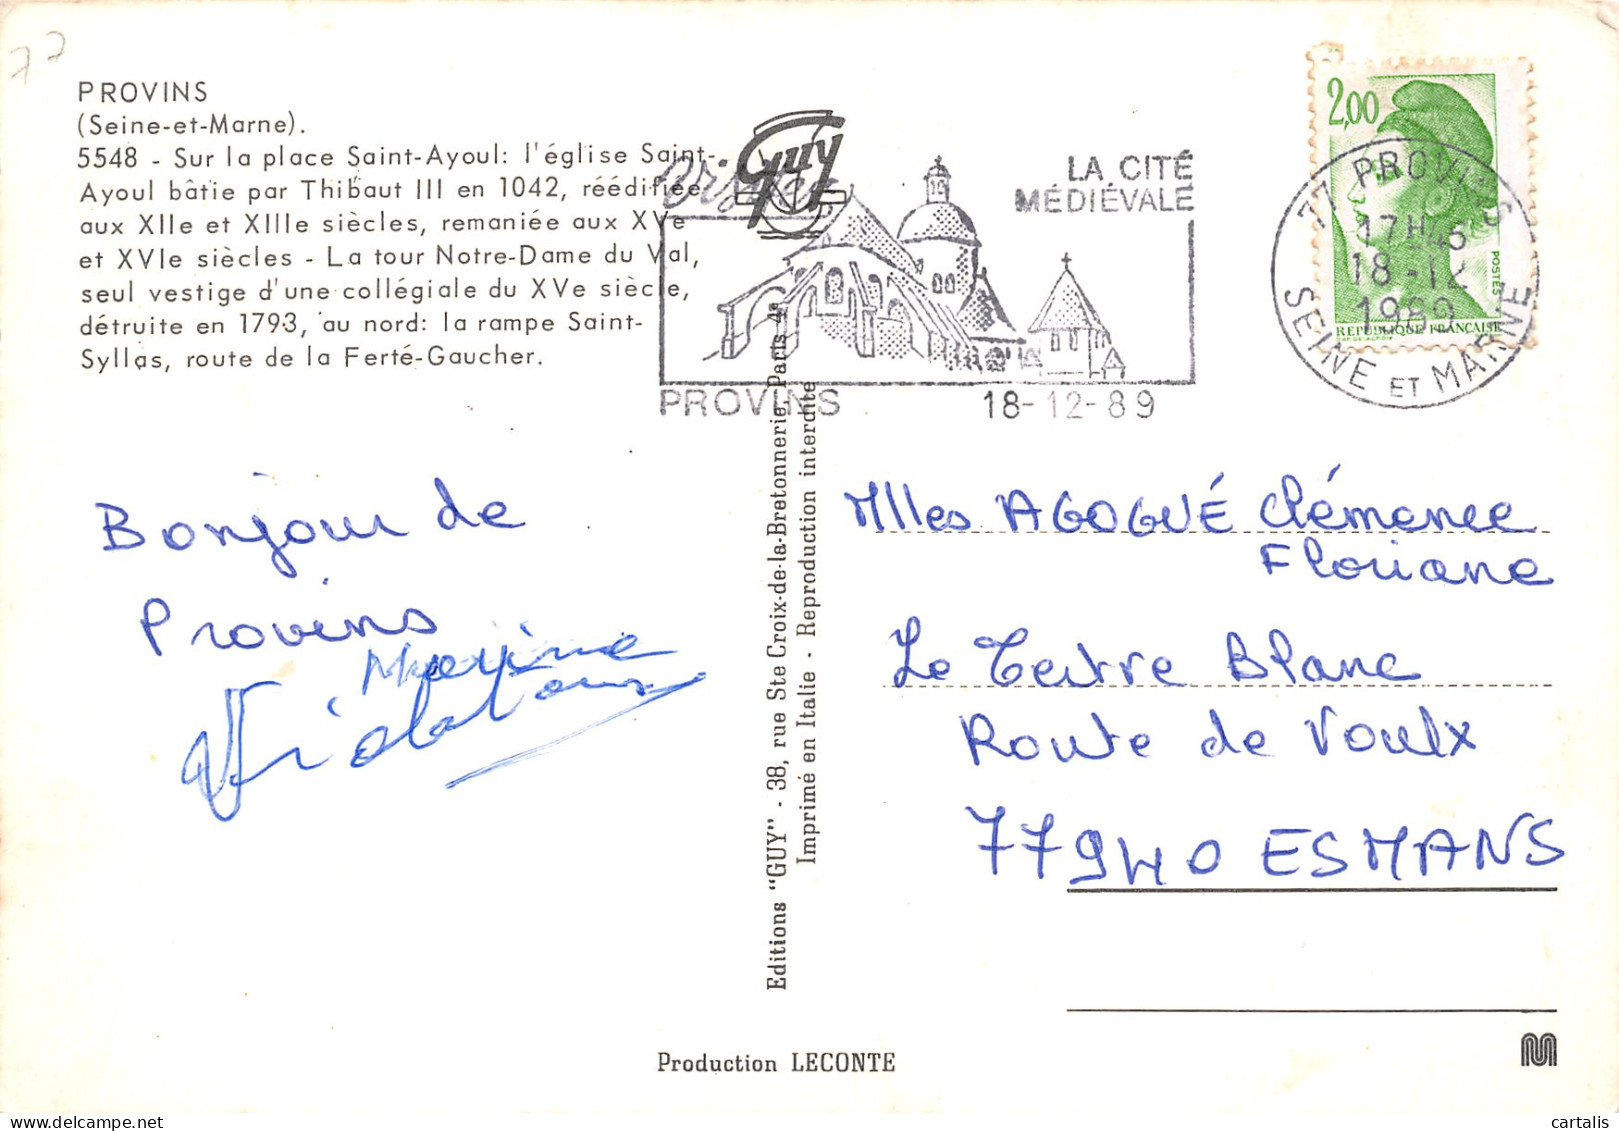 77
PROVINS
(Seine-et-Marne).
5548 - Sur la place Saint-Ayoul: l'église Saint-
Ayoul bâtie par Thibaut III en 1042, réédifiée
aux XIIe et XIIIe siècles, remaniée aux XVe
et XVIe siècles - La tour Notre-Dame du Val,
seul vestige d'une collégiale du XVe siècle,
détruite en 1793, au nord: la rampe Saint-
Syllas, route de la Ferté-Gaucher.
Guy
LA CITÉ
MÉDIÉVALE
PROVINS
18-12-89
2,00
POSTES
REPUBLIQUE FRANÇAISE
77 PROVINS
17H45
18-12
1989
SEINE ET MARNE
Bonjour de
Provins
Maxime
Editions "GUY" - 38, rue Ste Croix-de-la-Bretonnerie, Paris 4e
Imprimé en Italie - Reproduction interdite
Mlles AGOGUÉ Clémence
Floriane
Le Tertre Blanc
Route de Voulx
77940 ESMANS
Production LECONTE
M
cartalis
delcampe.net